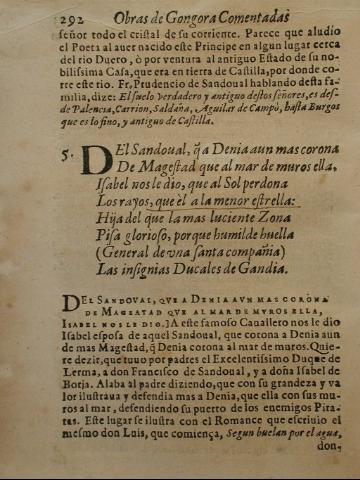 292 Obras de Gongora Comentadas
señor todo el cristal de su corriente. Parece que aludio
el Poeta al auer nacido este Principe en algun lugar cerca
del rio Duero, ò por ventura al antiguo Estado de su no-
bilissima Casa, que era en tierra de Castilla, por donde co-
rre este rio. Fr. Prudencio de Sandoual hablando desta fa-
milia, dize: El suelo verdadero y antiguo destos señores, es des-
de Palencia, Carrion, Saldaña, Aguilar de Campò, hasta Burgos
que es lo fino, y antiguo de Castilla.
5. DEl Sandoual, q̃ a Denia aun mas corona
De Magestad que al mar de muros ella,
Isabel nos le dio, que al Sol perdona
Los rayos, que èl a la menor estrella:
Hija del que la mas luciente Zona
Pisa glorioso, porque humilde huella
(General de vna santa compañia)
Las insignias Ducales de Gandia.
DEL SANDOVAL, QVE A DENIA AVN MAS CORONA
DE MAGESTAD QVE AL MAR DE MVROS ELLA,
ISABEL NOS LE DIO.] A este famoso Cauallero nos le dio
Isabel esposa de aquel Sandoual, que corona a Denia aun
de mas Magestad, q̃ Denia corona al mar de muros. Quie-
re dezir, que tuuo por padres el Excelentissimo Duque de
Lerma, a don Francisco de Sandoual, y a doña Isabel de
Borja. Alaba al padre diziendo, que con su grandeza y va
lor ilustraua y defendia mas a Denia, que ella con sus mu-
ros al mar, defendiendo su puerto de los enemigos Pira-
tas. Este lugar se ilustra con el Romance que escriuio el
mesmo don Luis, que comiença, Segun buelan por el agua,
don-